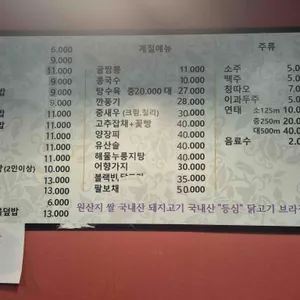 6.000
9.000
11.000
밥 9.000
9.000
밥 11.000
11.000
(2인이상) 10.000
13.000
13.000
6.000
덮밥 13.000
계절메뉴
굴짬뽕 11.000
콩국수 10.000
탕수육 중20.000 대 27.000
깐풍기 28.000
중새우 (크림,칠리) 30.000
고추잡채+꽃빵 40.000
양장피 40.000
유산슬 40.000
해물누룽지탕 40.000
어향가지 30.000
블랙빈 35.000
팔보채 50.000
주류
소주 5.0
맥주 5.0
칭따오 7.0
이과두주 5.0
연태 소125m 10.00
중250m 20.00
대500m 40.00
음료수 2.0
원산지 쌀 국내산 돼지고기 국내산 "등심" 닭고기 브라